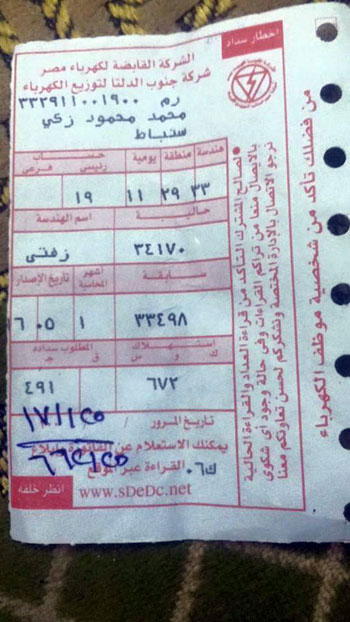 اخطار سداد
الشركة القابضة لكهرباء مصر
شركة جنوب الدلتا لتوزيع الكهرباء
رم ٣٣٢٩١١٠٠١٩٠٠
محمد محمود زكي
سنباط
هندسة منطقة يومية حساب رئيسى فرعى
٣٣ ٢٩ ١١ ١٩
حالية اسم الهندسة
٣٤١٧٠ زفتى
سابقة أشهر المحاسبة تاريخ الإصدار
٣٣٤٩٨ ١ ٠٥ ١٦
استهلاك ك و س المطلوب سداده ق ج
٦٧٢ ٤٩١
تاريخ المرور
يمكنك الاستعلام عن الفاتورة بإبلاغ
القراءة عبر الموقع
www.sDeDc.net
انظر خلفه
لصالح المشترك التأكد من قراءة العداد والقراءة الحالية
بالايصال منعا من تراكم القراءات وفى حالة وجود أى شكوى
نرجو الاتصال بالإدارة المختصة ونشكركم لحسن تعاونكم معنا
من فضلك تأكد من شخصية موظف الكهرباء